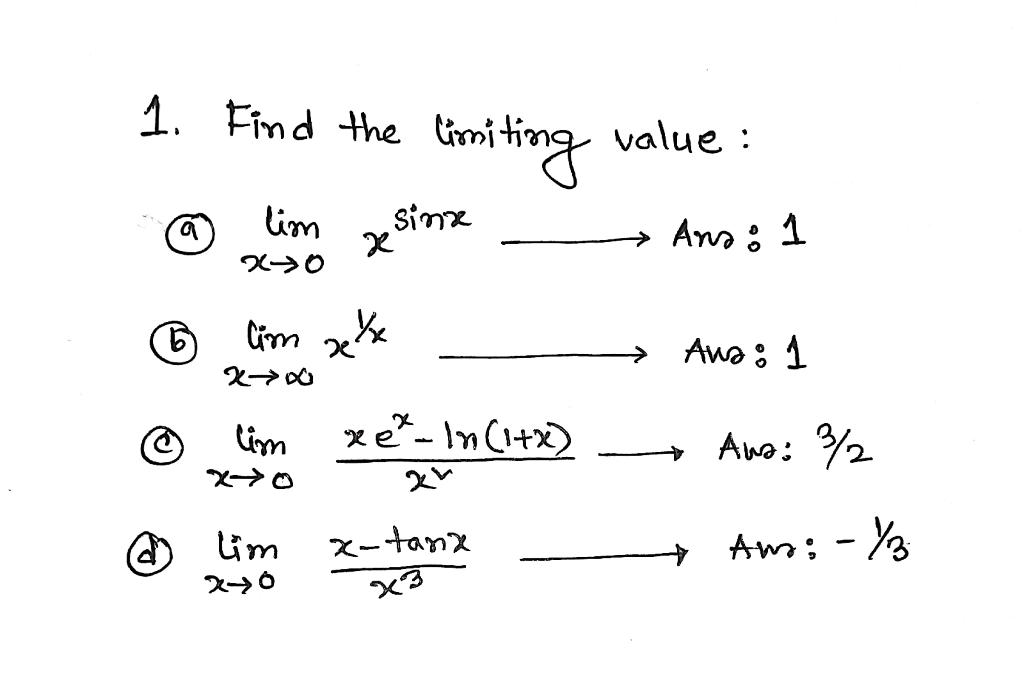 1. Find the limiting value :
(a) lim x→0 x^sinx → Ans : 1
(b) lim x→∞ x^1/x → Ans : 1
(c) lim x→0 (xe^x - ln(1+x))/x² → Ans : 3/2
(d) lim x→0 (x - tanx)/x³ → Ans : - 1/3